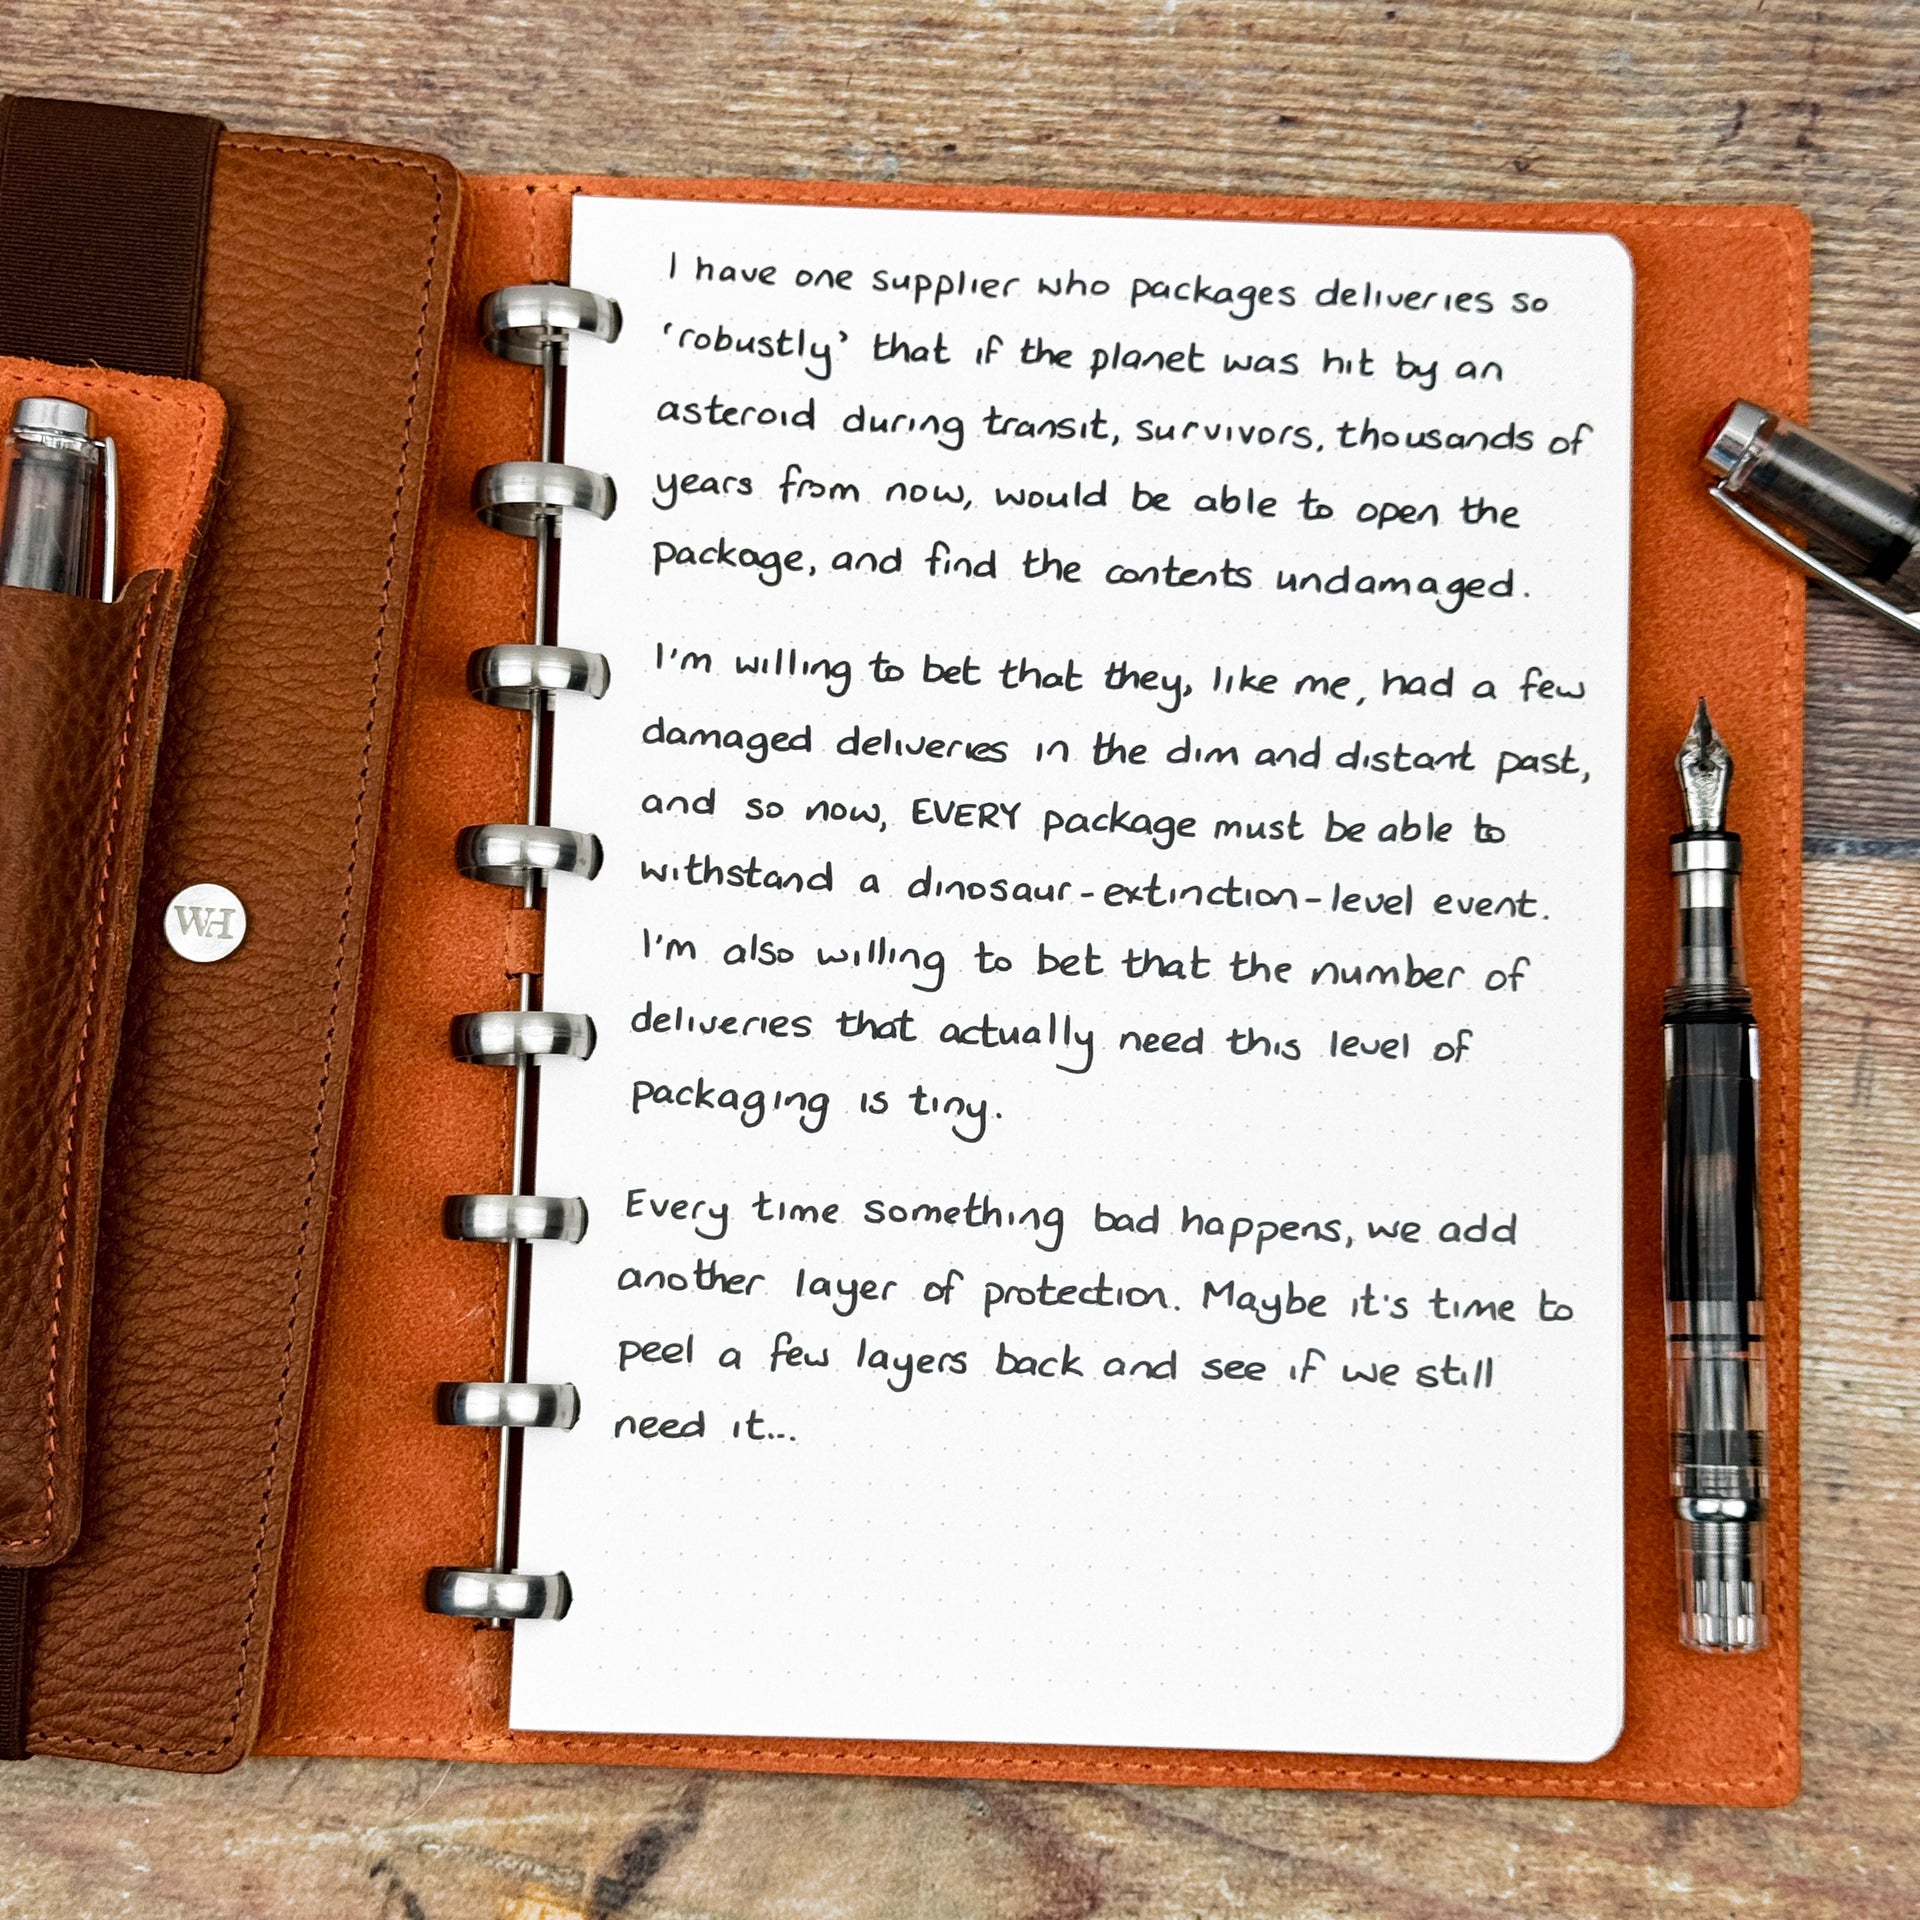 I have one supplier who packages deliveries so
‘robustly’ that if the planet was hit by an
asteroid during transit, survivors, thousands of
years from now, would be able to open the
package, and find the contents undamaged.
I'm willing to bet that they, like me, had a few
damaged deliveries in the dim and distant past,
and so now, EVERY package must be able to
withstand a dinosaur-extinction-level event.
I'm also willing to bet that the number of
deliveries that actually need this level of
packaging is tiny.
Every time something bad happens, we add
another layer of protection. Maybe it's time to
peel a few layers back and see if we still
need it...
WH